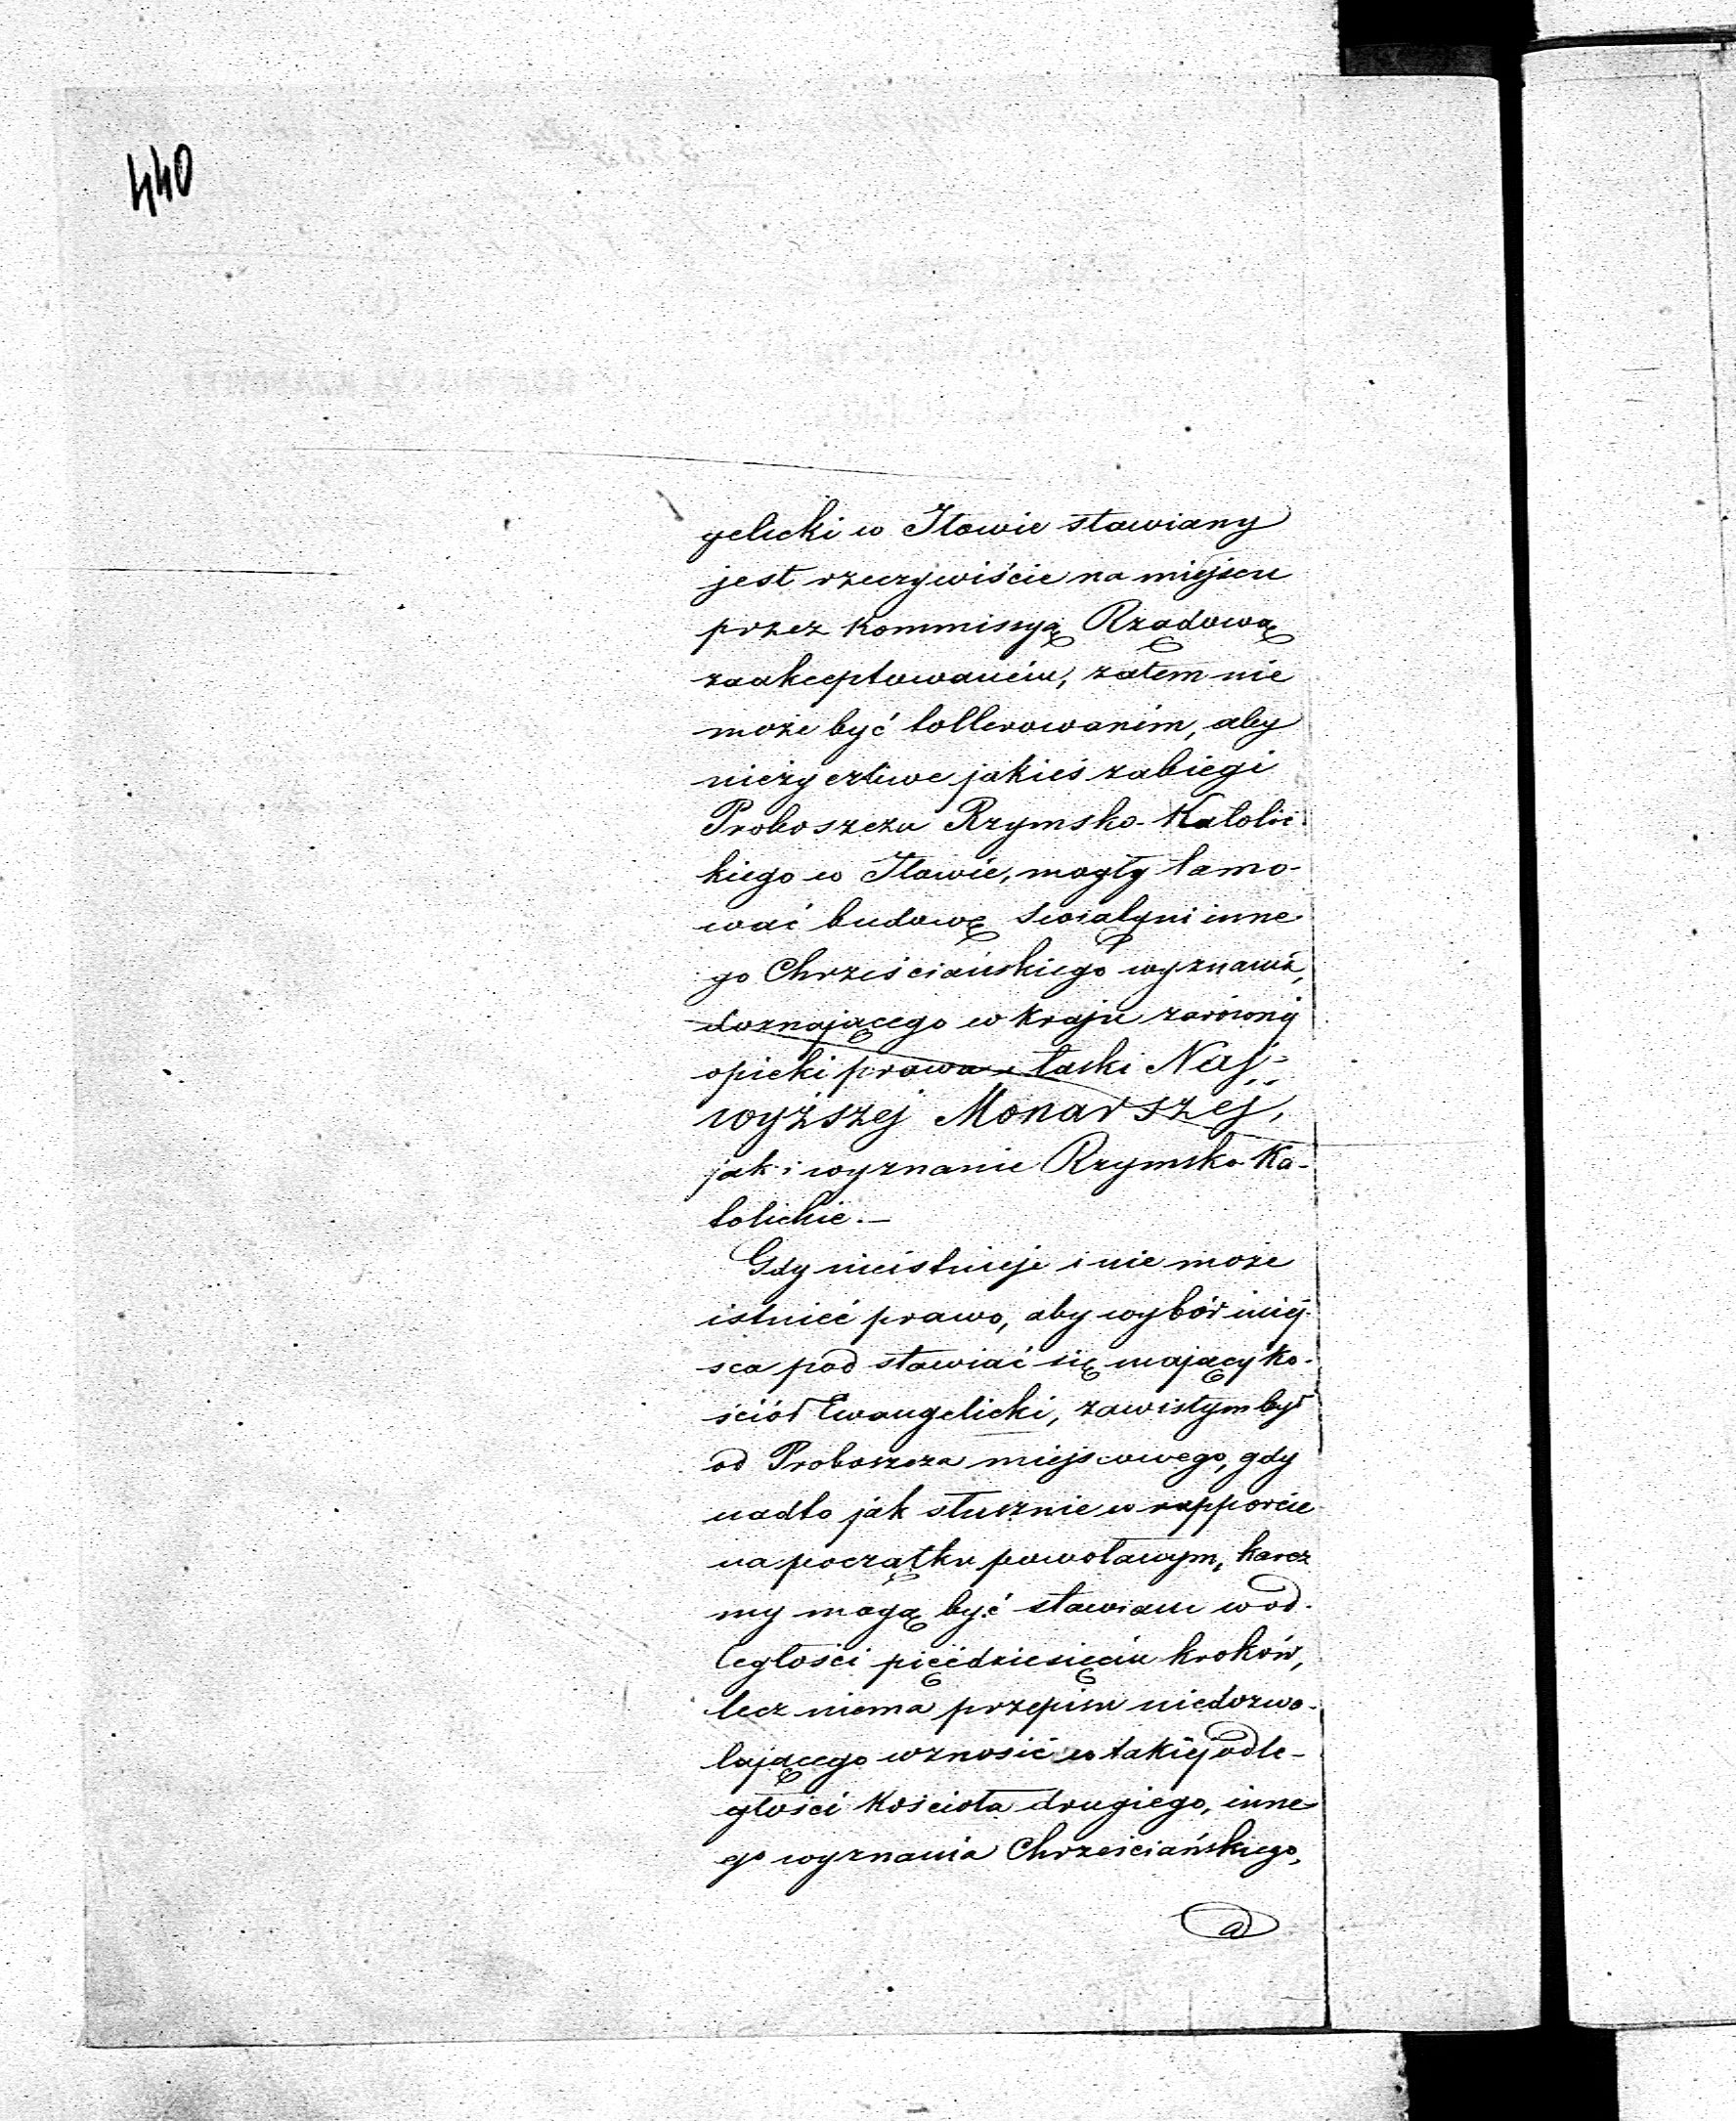 440
gelicki w Iłowie stawiany
jest rzeczywiście na miejscu
przez Kommissyą Rządową
zaakceptowaném, zatem nie
może być tollerowaném, aby
nieżyczliwe jakieś zabiegi
Proboszcza Rzymsko-Katolic-
kiego w Iłowie, mogły tamo-
wać budowę świątyni inne-
go Chrześciańskiego wyznania,
doznającego w Kraju zarówny
opieki prawa i łaski Naj-
wyższej Monarszej,
jak i wyznanie Rzymsko-Ka-
tolickie.—
Gdy nieistnieje i nie może
istnieć prawo, aby wybór miej-
sca pod stawiać się mający Ko-
ściół Ewangelicki, zawisłym był
od Proboszcza miejscowego, gdy
nadto jak słusznie w rapporcie
na początku powołanym, karcz-
my mogą być stawiane w od-
ległości pięćdziesięciu kroków,
lecz niema przepisu niedozwo-
lającego wznosić w takiéj odle-
głości Kościoła drugiego, inne-
go wyznania Chrześciańskiego,
a